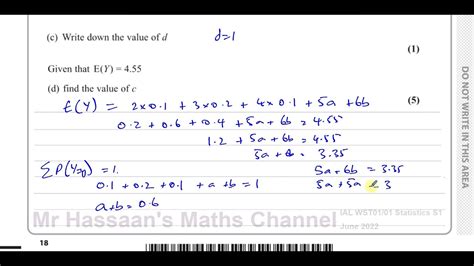 (c) Write down the value of d
d=1
(1)
Given that E(Y) = 4.55
(d) find the value of c
(5)
E(Y) = 2×0.1 + 3×0.2 + 4×0.1 + 5a + 6b
0.2 + 0.6 + 0.4 + 5a + 6b = 4.55
1.2 + 5a + 6b = 4.55
5a + 6b = 3.35
ΣP(Y=y) = 1.
0.1 + 0.2 + 0.1 + a + b = 1
a+b = 0.6
5a + 6b = 3.35
5a + 5a = 3
Mr Hassaan's Maths Channel
IAL WST01/01 Statistics S1
June 2022
18
DO NOT WRITE IN THIS AREA